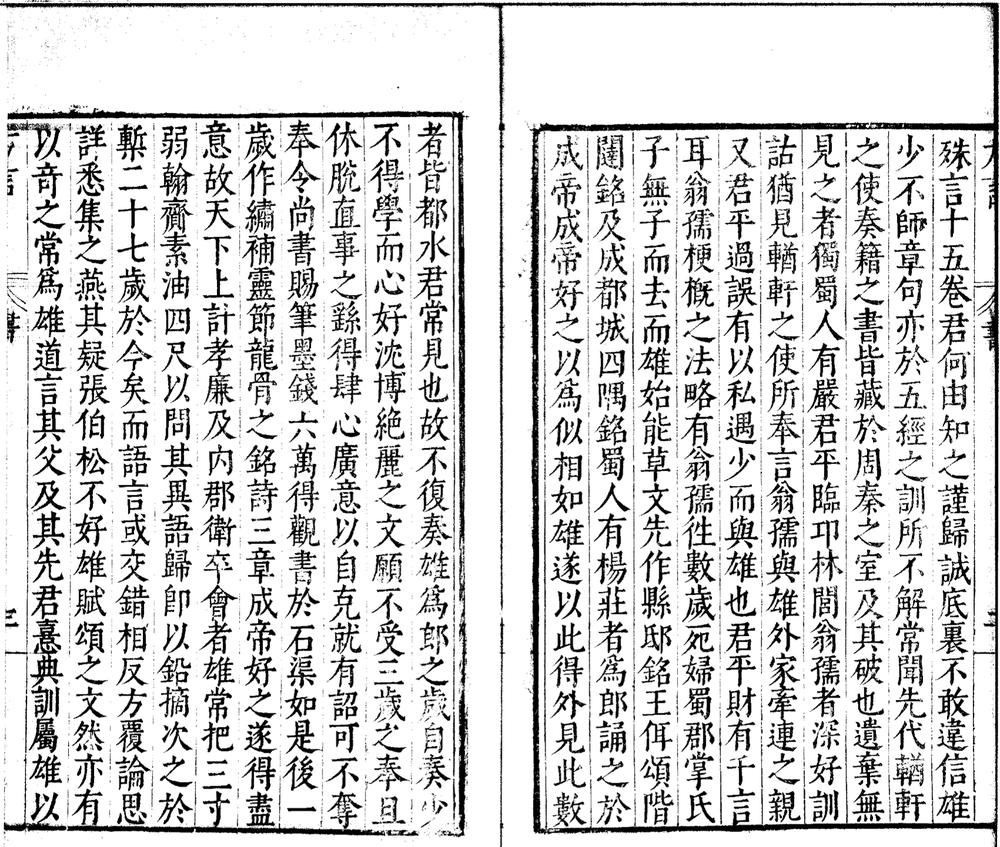 殊言十五卷君何由知之謹歸誠底裏不敢違信雄
少不師章句亦於五經之訓所不解常聞先代輶軒
之使奏籍之書皆藏於周秦之室及其破也遺棄無
見之者獨蜀人有嚴君平臨邛林閭翁孺者深好訓
詁猶見輶軒之使所奉言翁孺與雄外家牽連之親
又君平過誤有以私遇少而與雄也君平財有千言
耳翁孺梗概之法略有翁孺徃數歲死婦蜀郡掌氏
子無子而去而雄始能草文先作縣邸銘王佴頌階
闥銘及成都城四隅銘蜀人有楊莊者爲郎誦之於
成帝成帝好之以爲似相如雄遂以此得外見此數
者皆都水君常見也故不復奏雄爲郎之歲自奏少
不得學而心好沈博絶麗之文願不受三歲之奉且
休脫直事之繇得肆心廣意以自克就有詔可不奪
奉令尚書賜筆墨錢六萬得觀書於石渠如是後一
歲作繡補靈節龍骨之銘詩三章成帝好之遂得盡
意故天下上計孝廉及内郡衛卒會者雄常把三寸
弱翰齎素油四尺以問其異語歸卽以鉛摘次之於
槧二十七歲於今矣而語言或交錯相反方覆論思
詳悉集之燕其疑張伯松不好雄賦頌之文然亦有
以奇之常爲雄道言其父及其先君憙典訓屬雄以